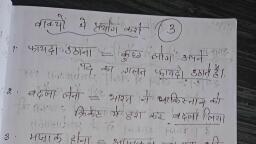 वाक्यों में प्रयोग करो 3
1. फायदा उठाना = कुछ लोग अपने
पद का गलत फायदा उठाते हैं।
2. बदला लेना = भारत ने पाकिस्तान को
क्रिकेट में हरा कर बदला लिया
3.